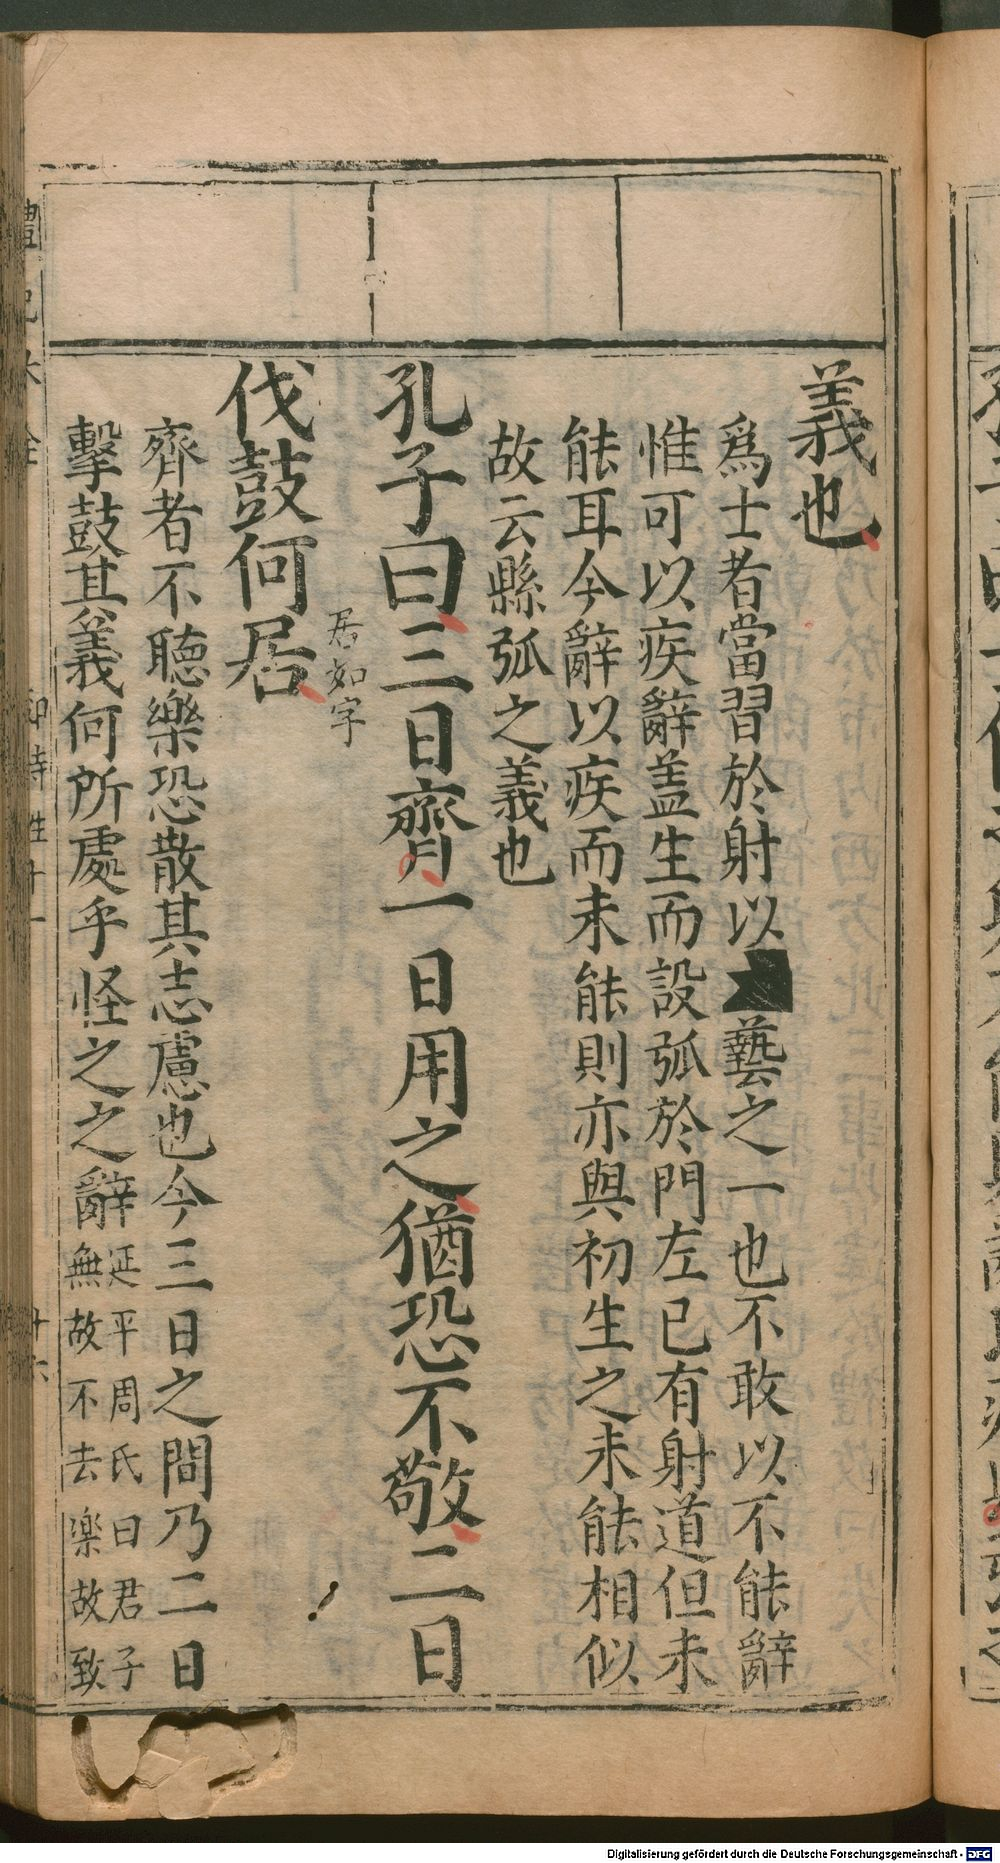 義也
爲士者當習於射以藝之一也不敢以不能辭
惟可以疾辭盖生而設弧於門左已有射道但未
能耳今辭以疾而未能則亦與初生之未能相似
故云縣弧之義也
孔子曰三日齊一日用之猶恐不敬二日
居如字
伐鼓何居
齊者不聽樂恐散其志慮也今三日之間乃二日
擊鼓其義何所處乎怪之之辭延平周氏曰君子
無故不去樂故致
Digitalisierung gefördert durch die Deutsche Forschungsgemeinschaft - DFG